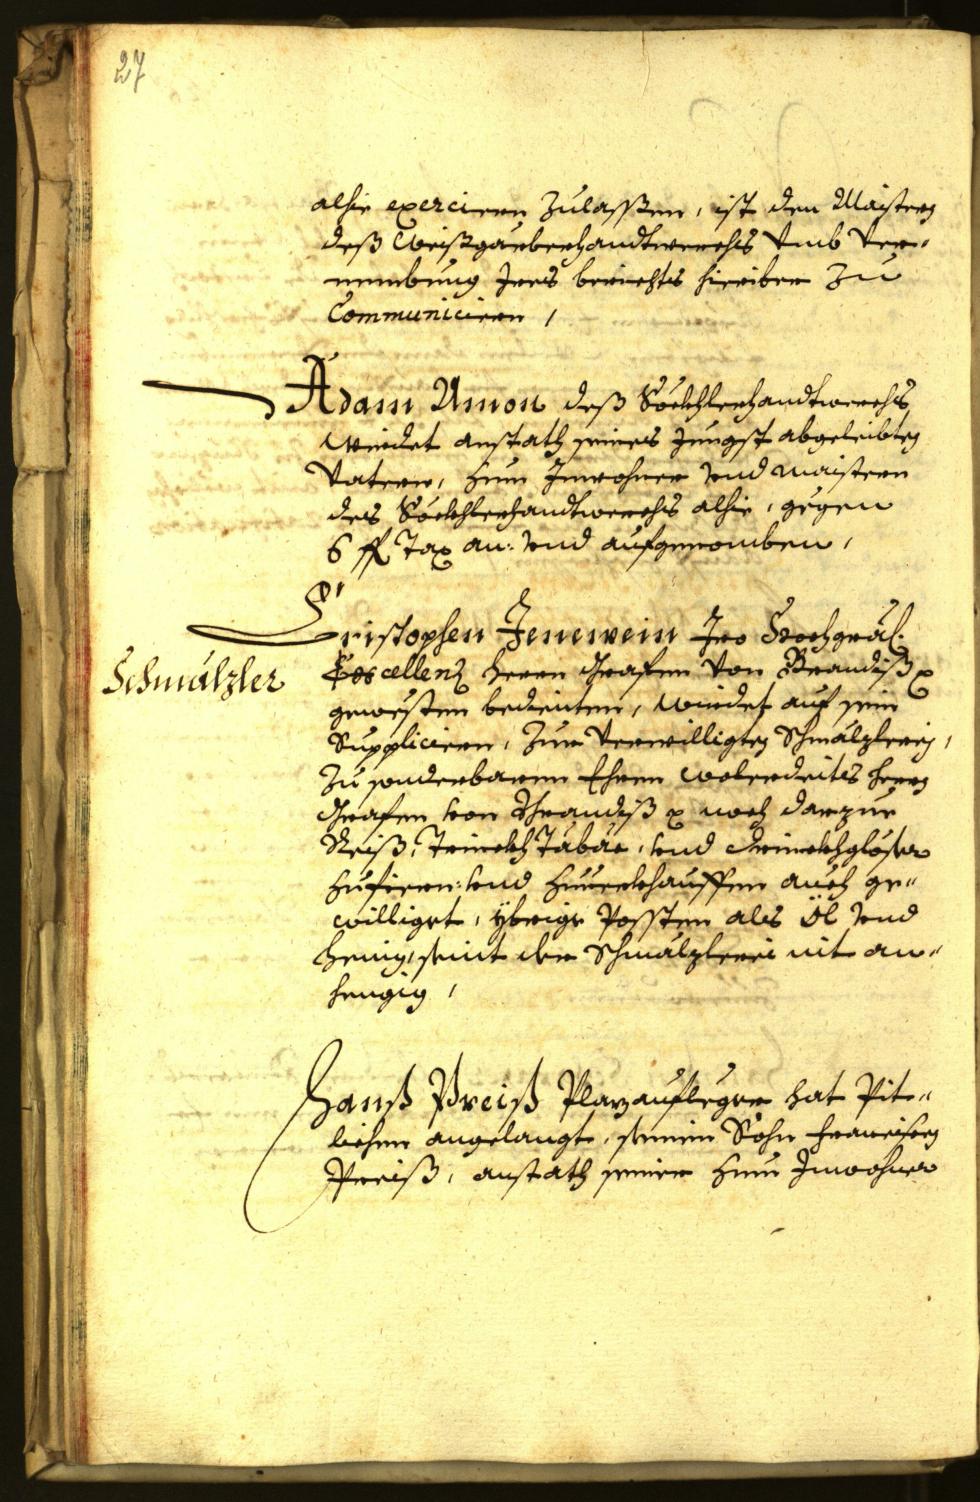 27
alhie exercieren Zulassen, ist den Maistern
deß Weißgärberhandtwerchs vmb Ver-
nembung Jres berichts hierüber Zu
Communiciern,
Adam Simon deß Söckhlerhandtwerchs
würdet anstath seines jungst abgeleibten
Vatern, zum Jnwohner vnd maistern
des Söckhlerhandtwerchs alhie, gegen
6 fl Tax an: vnd aufgenomben,
Cristophen Jenewein Jro Hochgräfl.
Schmälzler
Excellenz herrn Grafen von Brandiß
gewesten bedienten, würdet auf sein
Supplicieren, Zur verwilligten Schmälzlerey,
Zu sonderbaren Ehren wolermeltes herrn
Grafen von Brandiß noch darzue
Reiß, Trinckh Tabac, vnd Trinckhgläser
Zufieren: vnd zuuerkhauffen auch ge-
williget, ybrige Possten als Öl vnd
henig, seint der Schmälzlerei nit an-
hengig,
Hanß Preiß Plazaufleger hat Pit-
lichen angelangt, seinen Sohn Francisen
Preiß, anstath seiner zum Jnwohner